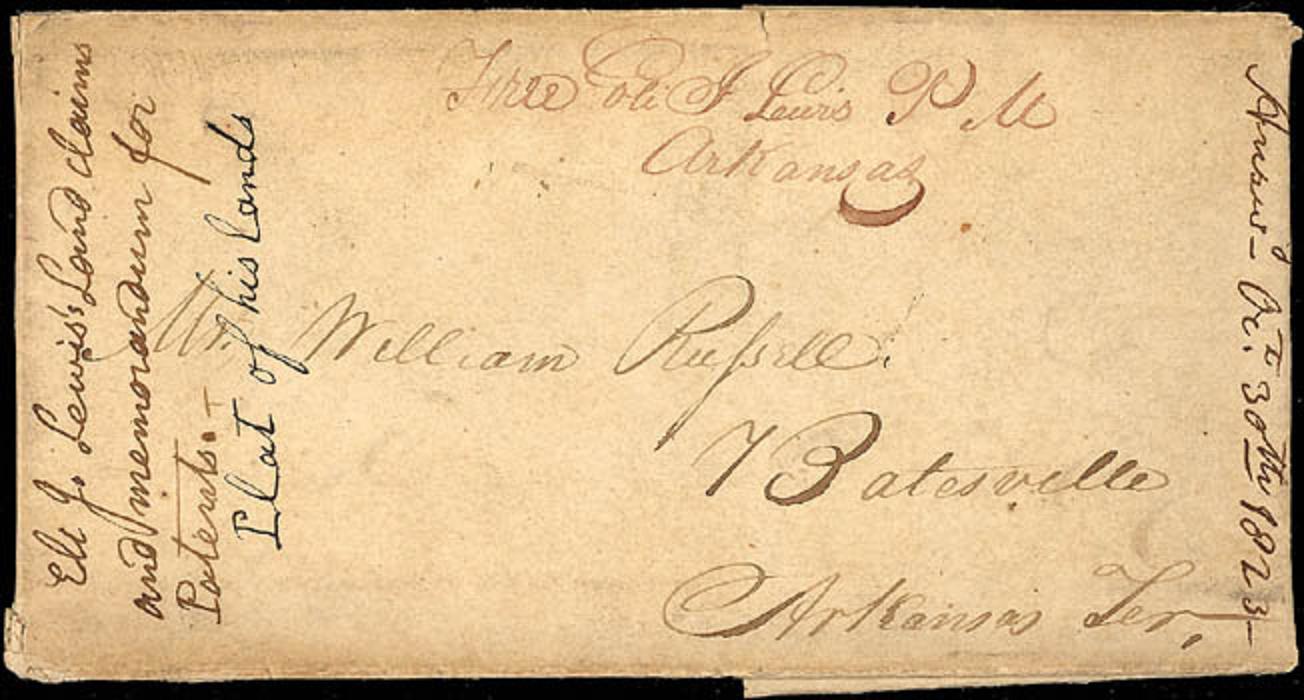 Free Eli J Lewis P M
Arkansas
Mr. William Russell.
Batesville
Arkansas Ter,
Eli J. Lewis's Land claims
and memorandum for
Patents.—
Plat of his lands
Answd— Oct. 30th 1823—